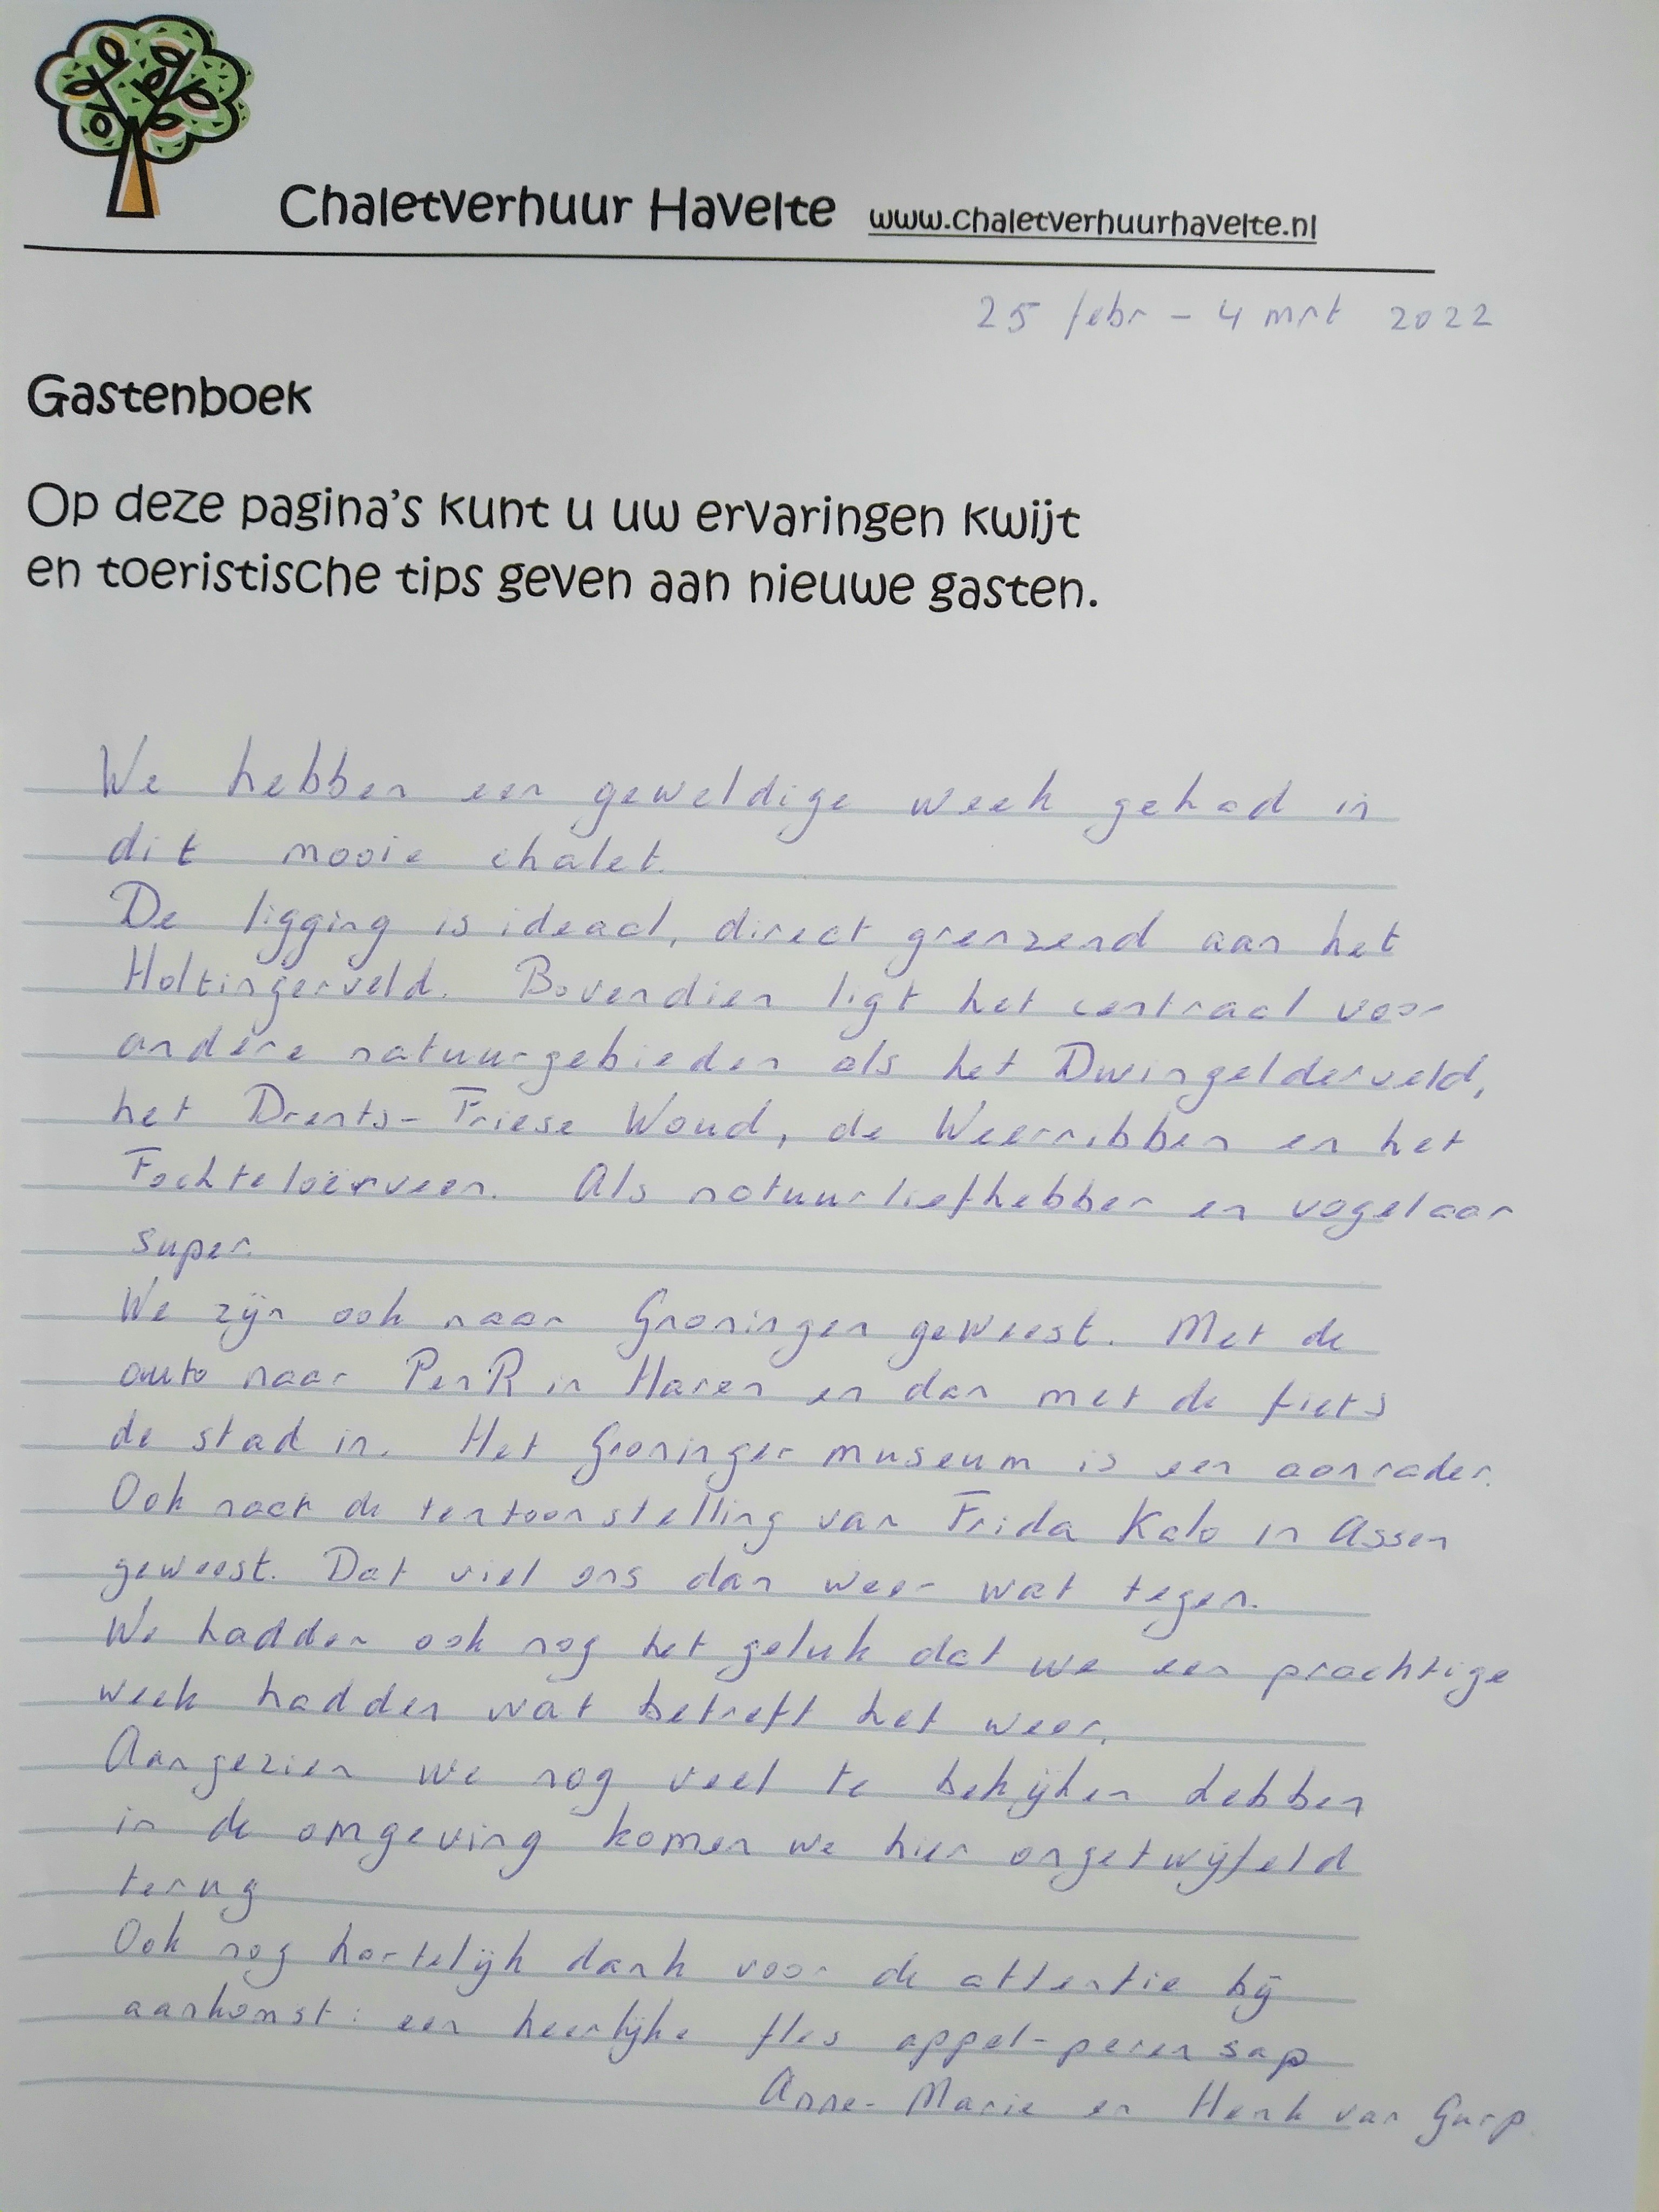 Chaletverhuur Havelte www.chaletverhuurhavelte.nl
25 febr - 4 mrt 2022
Gastenboek
Op deze pagina's kunt u uw ervaringen kwijt
en toeristische tips geven aan nieuwe gasten.
We hebben een geweldige week gehad in
dit mooie chalet.
De ligging is ideaal, direct grenzend aan het
Holtingerveld. Bovendien ligt het centraal voor
andere natuurgebieden als het Dwingelderveld,
het Drents-Friese Woud, de Weerribben en het
Fochteloërveen. Als natuurliefhebber en vogelaar
super.
We zijn ook naar Groningen geweest. Met de
auto naar PenR in Haren en dan met de fiets
de stad in. Het Groninger museum is een aanrader.
Ook naar de tentoonstelling van Frida Kalo in Assen
geweest. Dat viel ons dan weer wat tegen.
We hadden ook nog het geluk dat we een prachtige
week hadden wat betreft het weer.
Aangezien we nog veel te bekijken hebben
in de omgeving komen we hier ongetwijfeld
terug
Ook nog hartelijk dank voor de attentie bij
aankomst: een heerlijke fles appel-perensap
Anne-Marie en Henk van Gurp